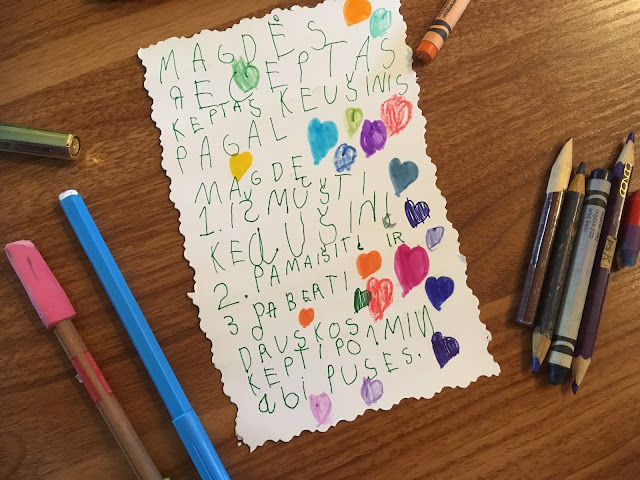 MAGDĖS
RECEPTAS
KEPTAS KEUŠINIS
PAGAL
MAGDE
1. IŠMUŠTI
KEAUŠINĮ
2. PAMAIŠITI IR
3 DABERTI
DRUSKOS
KEPTI PO 1 MIN
abi PUSES.